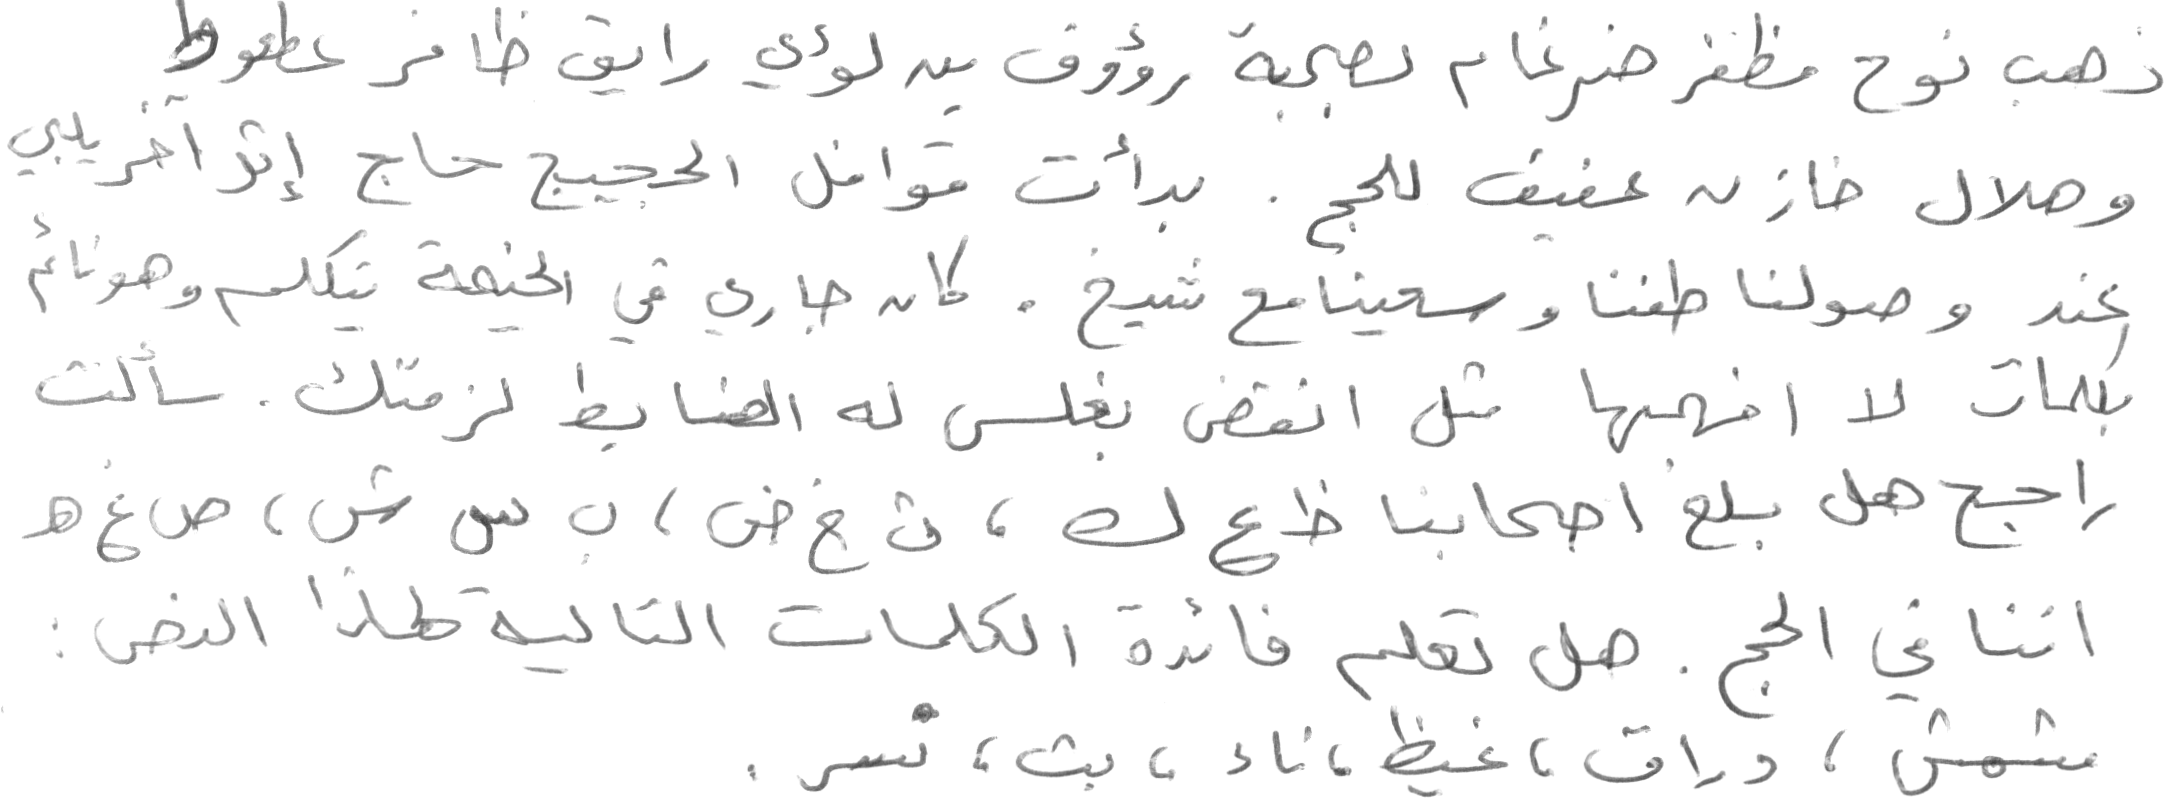 ذهب نوح مظفر ضرغام بصحبة رؤوف بن لؤي رايق ظافر عطعوط
وهلال خازن عفيف للحج . بدأت قوافل الحجيج حاج إثر آخر يلبي
عند وصولنا طفنا وسعينا مع شيخ . كان جاري في الخيمة يتكلم وهو نائم
بكلمات لا افهمها مثل انقض بغلس له الضابط لزمتك . سألت
راجح هل بلغ اصحابنا ظ ع ك ، ث خ ض ، ب س ش ، ص غ ه
اننا في الحج . هل تعلم فائدة الكلمات التالية لهذا النص :
مشمش ، دراق ، غيظ ، ناء ، بث ، نسر .